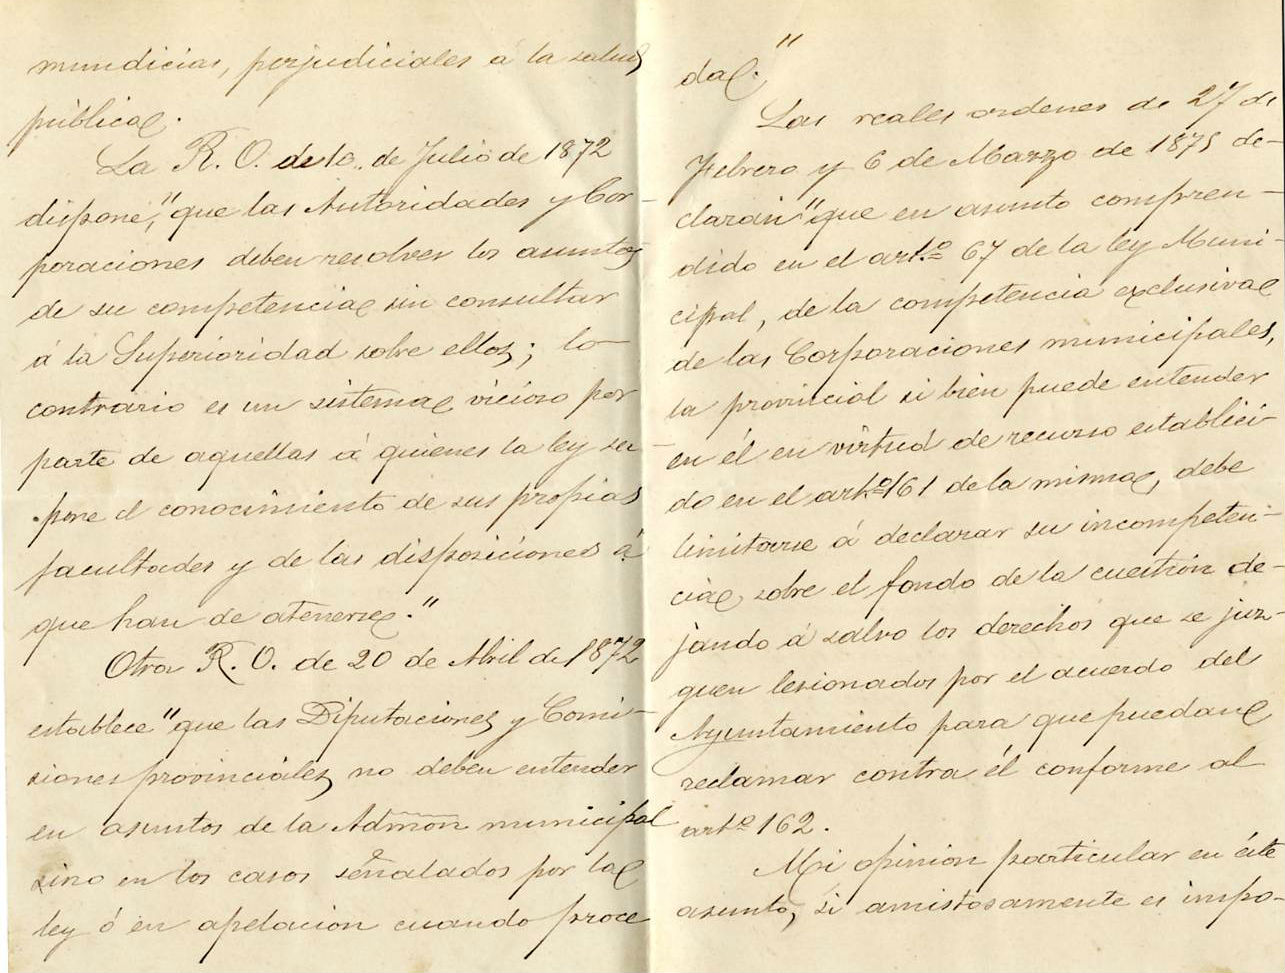 mundicias, perjudiciales á la salud
pública.
La R. O. de 10 de Julio de 1872
dispone, "que las Autoridades y Cor-
poraciones deben resolver los asuntos
de su competencia sin consultar
á la Superioridad sobre ellos; lo
contrario es un sistema vicioso por
parte de aquellas á quienes la ley su-
pone el conocimiento de sus propias
facultades y de las disposiciones á
que han de atenerse."
Otra R. O. de 20 de Abril de 1872
establece "que las Diputaciones y Comi-
siones provinciales no deben entender
en asuntos de la Admon municipal
sino en los casos señalados por la
ley ó en apelacion cuando proce
da."
Las reales ordenes de 27 de
Febrero y 6 de Marzo de 1875 de-
claran "que en asunto compren-
dido en el artº 67 de la ley Muni-
cipal, de la competencia exclusiva
de las Corporaciones municipales,
la provincial si bien puede entender
en él en virtud de recurso estableci-
do en el artº 161 de la misma, debe
limitarse á declarar su incompeten-
cia sobre el fondo de la cuestión de-
jando á salvo los derechos que se juz-
guen lesionados por el acuerdo del
Ayuntamiento para que puedan
reclamar contra él conforme al
artº 162.
Mi opinion particular en éste
asunto, si amistosamente es impo-